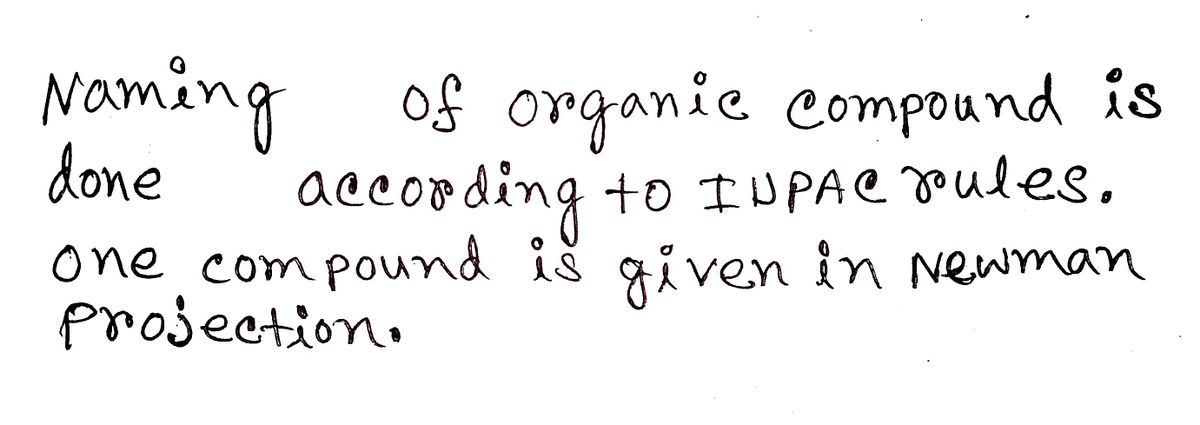 Naming of organic compound is
done according to IUPAC rules.
one compound is given in Newman
Projection.